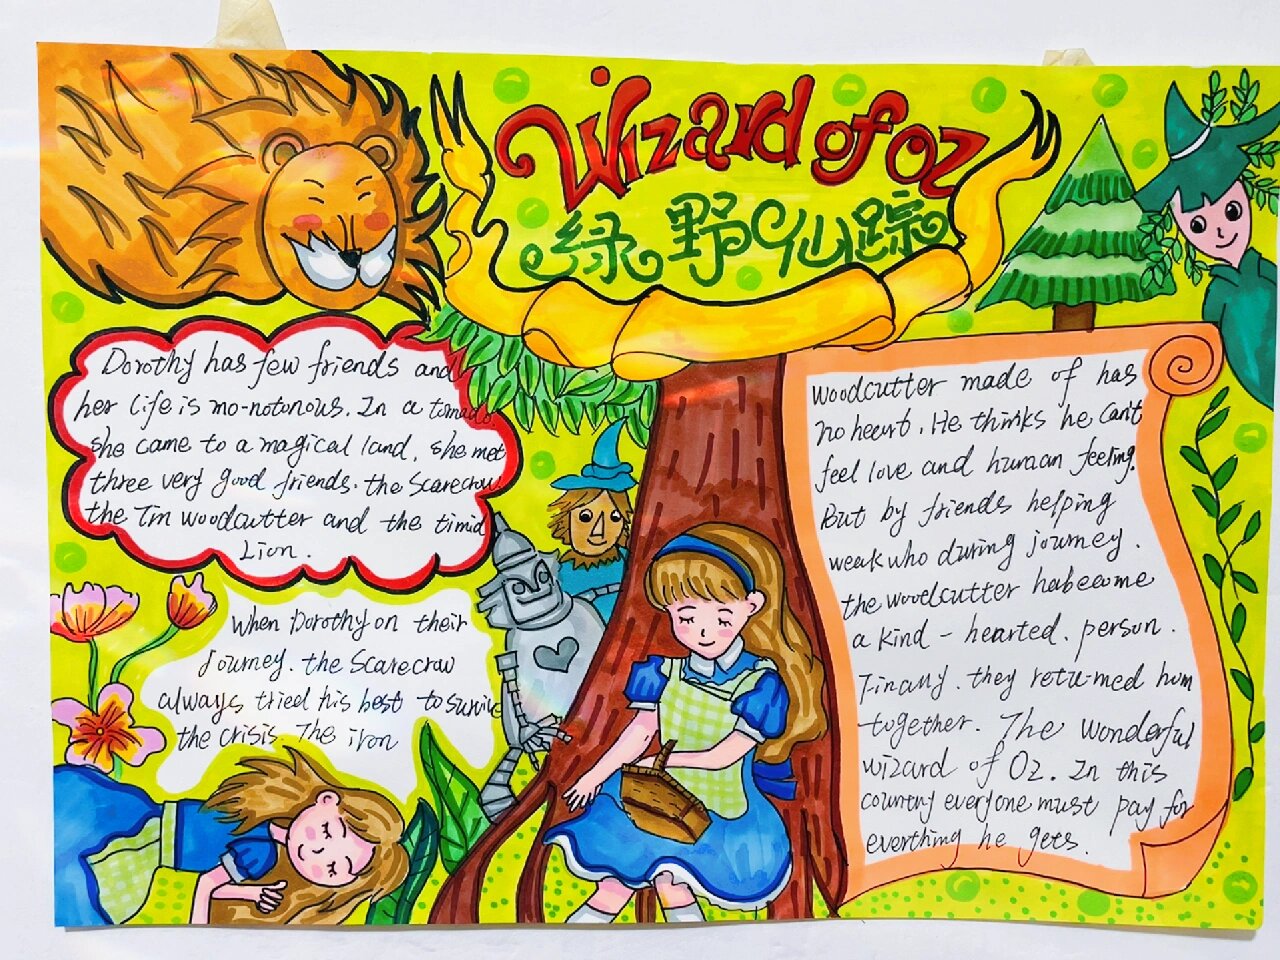 Wizard of Oz
绿野仙踪
Dorothy has few friends and
her life is mo-notonous. In a tornado.
she came to a magical land, she met
three very good friends. the Scarecrow
the Tin woodcutter and the timid
Lion.
When Dorothy on their
Journey. the Scarecrow
always tried his best to survive
the crisis. The iron
woodcutter made of has
no heart. He thinks he can't
feel love and human feeling.
But by friends helping
weak who during journey.
the woodcutter habecome
a kind - hearted. person.
Finally. they retu-rned hom
together. The Wonderful
wizard of Oz. In this
country everyone must pay for
everthing he gets.